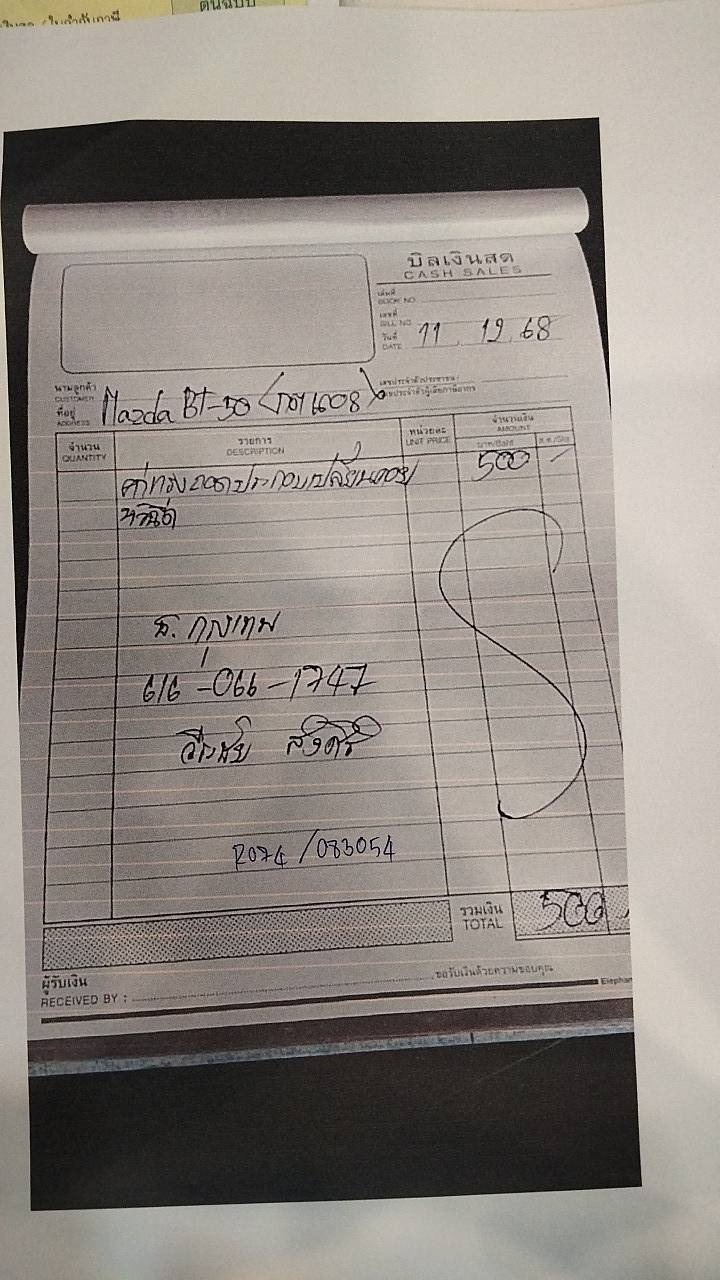 ต้นฉบับ
ใบกำกับภาษี
บิลเงินสด
CASH SALES
เล่มที่
BOOK NO.
เลขที่
BILL NO.
วันที่ 11 12 68
DATE
นามลูกค้า
CUSTOMER
เลขประจำตัวประชาชน /
เลขประจำตัวผู้เสียภาษีอากร
ที่อยู่ Mazda BT-50 1608
ADDRESS
จำนวน รายการ หน่วยละ จำนวนเงิน
QUANTITY DESCRIPTION UNIT PRICE AMOUNT
บาท/Baht ส.ต./Stg.
ค่าแรงถอดประกอบเปลี่ยนคอย 500 -
หัวฉีด
ธ. กรุงเทพ
616-066-1747
R074/083054
รวมเงิน 500
TOTAL
ผู้รับเงิน
RECEIVED BY :
ขอรับเงินด้วยความขอบคุณ